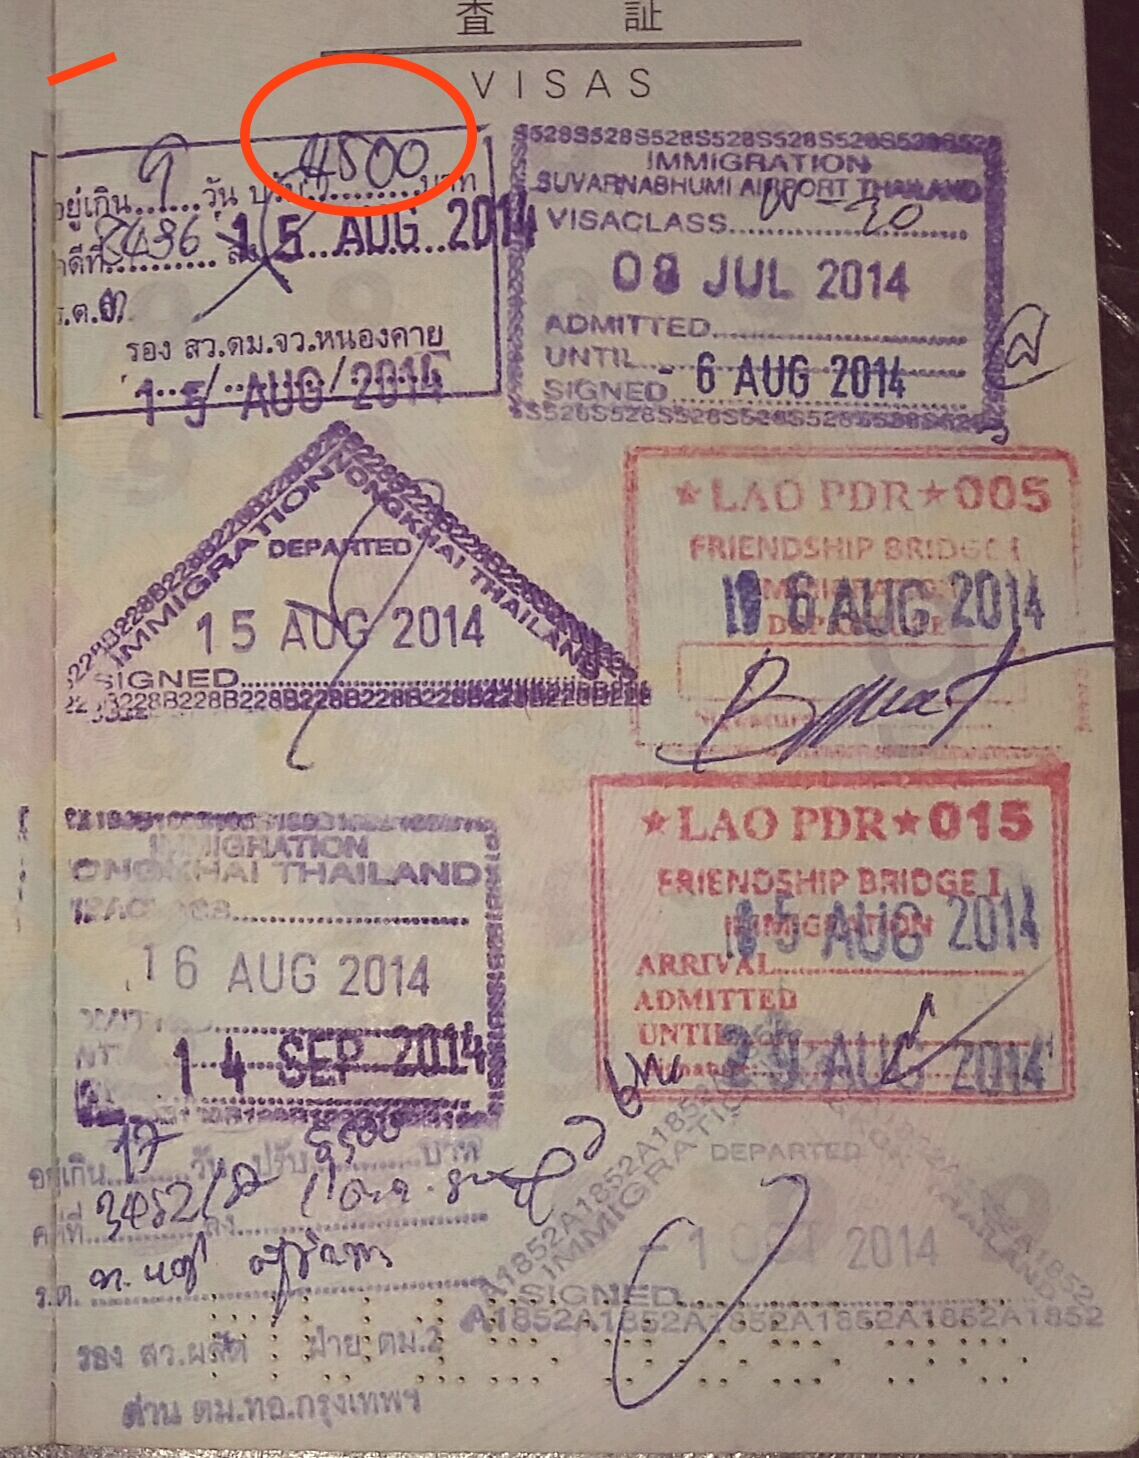 査 証
VISAS
อยู่เกิน 9 วัน ปรับ 4500 บาท
คดีที่ 2436 ลง 15 AUG 2014
ร.ต.อ.
รอง สว.ตม.จว.หนองคาย
15 AUG 2014
S528S528S528S528S528S528S528S528
IMMIGRATION
SUVARNABHUMI AIRPORT THAILAND
VISACLASS
08 JUL 2014
ADMITTED
UNTIL
- 6 AUG 2014
SIGNED
S528S528S528S528S528S528S528
IMMIGRATION NONGKHAI THAILAND
DEPARTED
15 AUG 2014
SIGNED
228B228B228B228B228B228B228B228B228
★LAO PDR★005
FRIENDSHIP BRIDGE I
IMMIGRATION
16 AUG 2014
DEPARTURE
Signature
IMMIGRATION
ONGKHAI THAILAND
16 AUG 2014
14 SEP 2014
★LAO PDR★015
FRIENDSHIP BRIDGE I
IMMIGRATION
15 AUG 2014
ARRIVAL
ADMITTED
UNTIL
29 AUG 2014
อยู่เกิน 17 วัน ปรับ 8500 บาท
คดีที่ ลง
ร.ต.
รอง สว.ผลัด ฝ่าย ตม.2
ด่าน ตม.ทอ.กรุงเทพฯ
A1852A1852A1852A1852
IMMIGRATION
DEPARTED
- 1 2014
SIGNED
A1852A1852A1852A1852A1852A1852A1852